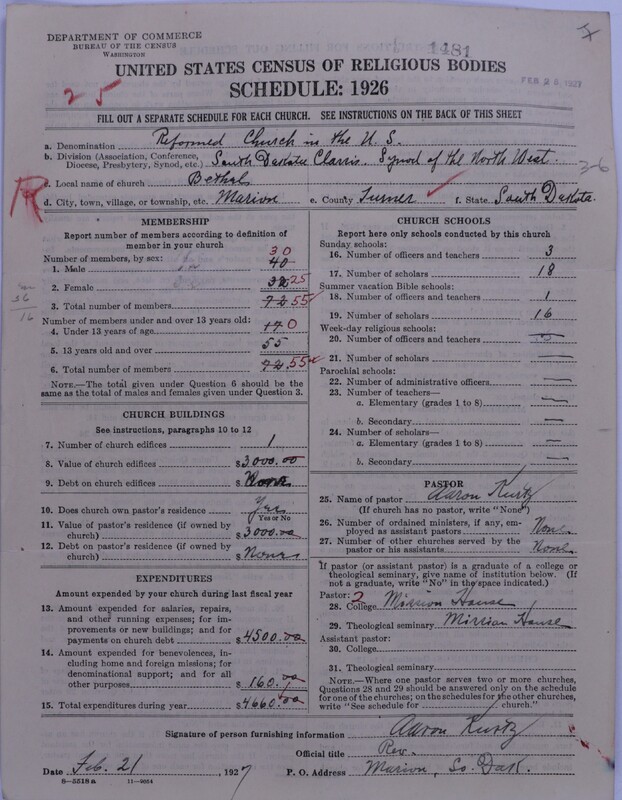 DEPARTMENT OF COMMERCE
BUREAU OF THE CENSUS
WASHINGTON
1481
FEB 26 1927
UNITED STATES CENSUS OF RELIGIOUS BODIES
SCHEDULE: 1926
25
FILL OUT A SEPARATE SCHEDULE FOR EACH CHURCH. SEE INSTRUCTIONS ON THE BACK OF THIS SHEET
a. Denomination Reformed Church in the U.S.
b. Division (Association, Conference, Diocese, Presbytery, Synod, etc.) South Dakota Classis Synod of the North West.
c. Local name of church Bethel
d. City, town, village, or township, etc. Marion e. County Turner f. State South Dakota.
R
MEMBERSHIP
Report number of members according to definition of member in your church
Number of members, by sex:
1. Male 40 30
2. Female 32 25
3. Total number of members 72 55
Number of members under and over 13 years old:
4. Under 13 years of age 17 0
5. 13 years old and over 55
6. Total number of members 72 55
NOTE.—The total given under Question 6 should be the same as the total of males and females given under Question 3.
CHURCH BUILDINGS
See instructions, paragraphs 10 to 12
7. Number of church edifices 1
8. Value of church edifices $3000.00
9. Debt on church edifices $None
10. Does church own pastor's residence Yes
Yes or No
11. Value of pastor's residence (if owned by church) $3000.00
12. Debt on pastor's residence (if owned by church) $None
EXPENDITURES
Amount expended by your church during last fiscal year
13. Amount expended for salaries, repairs, and other running expenses; for improvements or new buildings; and for payments on church debt $4500.00
14. Amount expended for benevolences, including home and foreign missions; for denominational support; and for all other purposes $160.00
15. Total expenditures during year $4660.00
CHURCH SCHOOLS
Report here only schools conducted by this church
Sunday schools:
16. Number of officers and teachers 3
17. Number of scholars 18
Summer vacation Bible schools:
18. Number of officers and teachers 1
19. Number of scholars 16
Week-day religious schools:
20. Number of officers and teachers
21. Number of scholars —
Parochial schools:
22. Number of administrative officers —
23. Number of teachers—
a. Elementary (grades 1 to 8) —
b. Secondary —
24. Number of scholars—
a. Elementary (grades 1 to 8) —
b. Secondary —
PASTOR
25. Name of pastor Aaron Kurtz
(If church has no pastor, write "None")
26. Number of ordained ministers, if any, employed as assistant pastors None
27. Number of other churches served by the pastor or his assistants None.
If pastor (or assistant pastor) is a graduate of a college or theological seminary, give name of institution below. (If not a graduate, write "No" in the space indicated.)
Pastor: 2
28. College Mission House
29. Theological seminary Mission House
Assistant pastor:
30. College
31. Theological seminary
NOTE.—Where one pastor serves two or more churches, Questions 28 and 29 should be answered only on the schedule for one of the churches; on the schedules for the other churches, write "See schedule for church."
Signature of person furnishing information Aaron Kurtz
Official title Rev.
Date Feb. 21, 1927 P. O. Address Marion, So. Dak.
6—5518a 11—9664